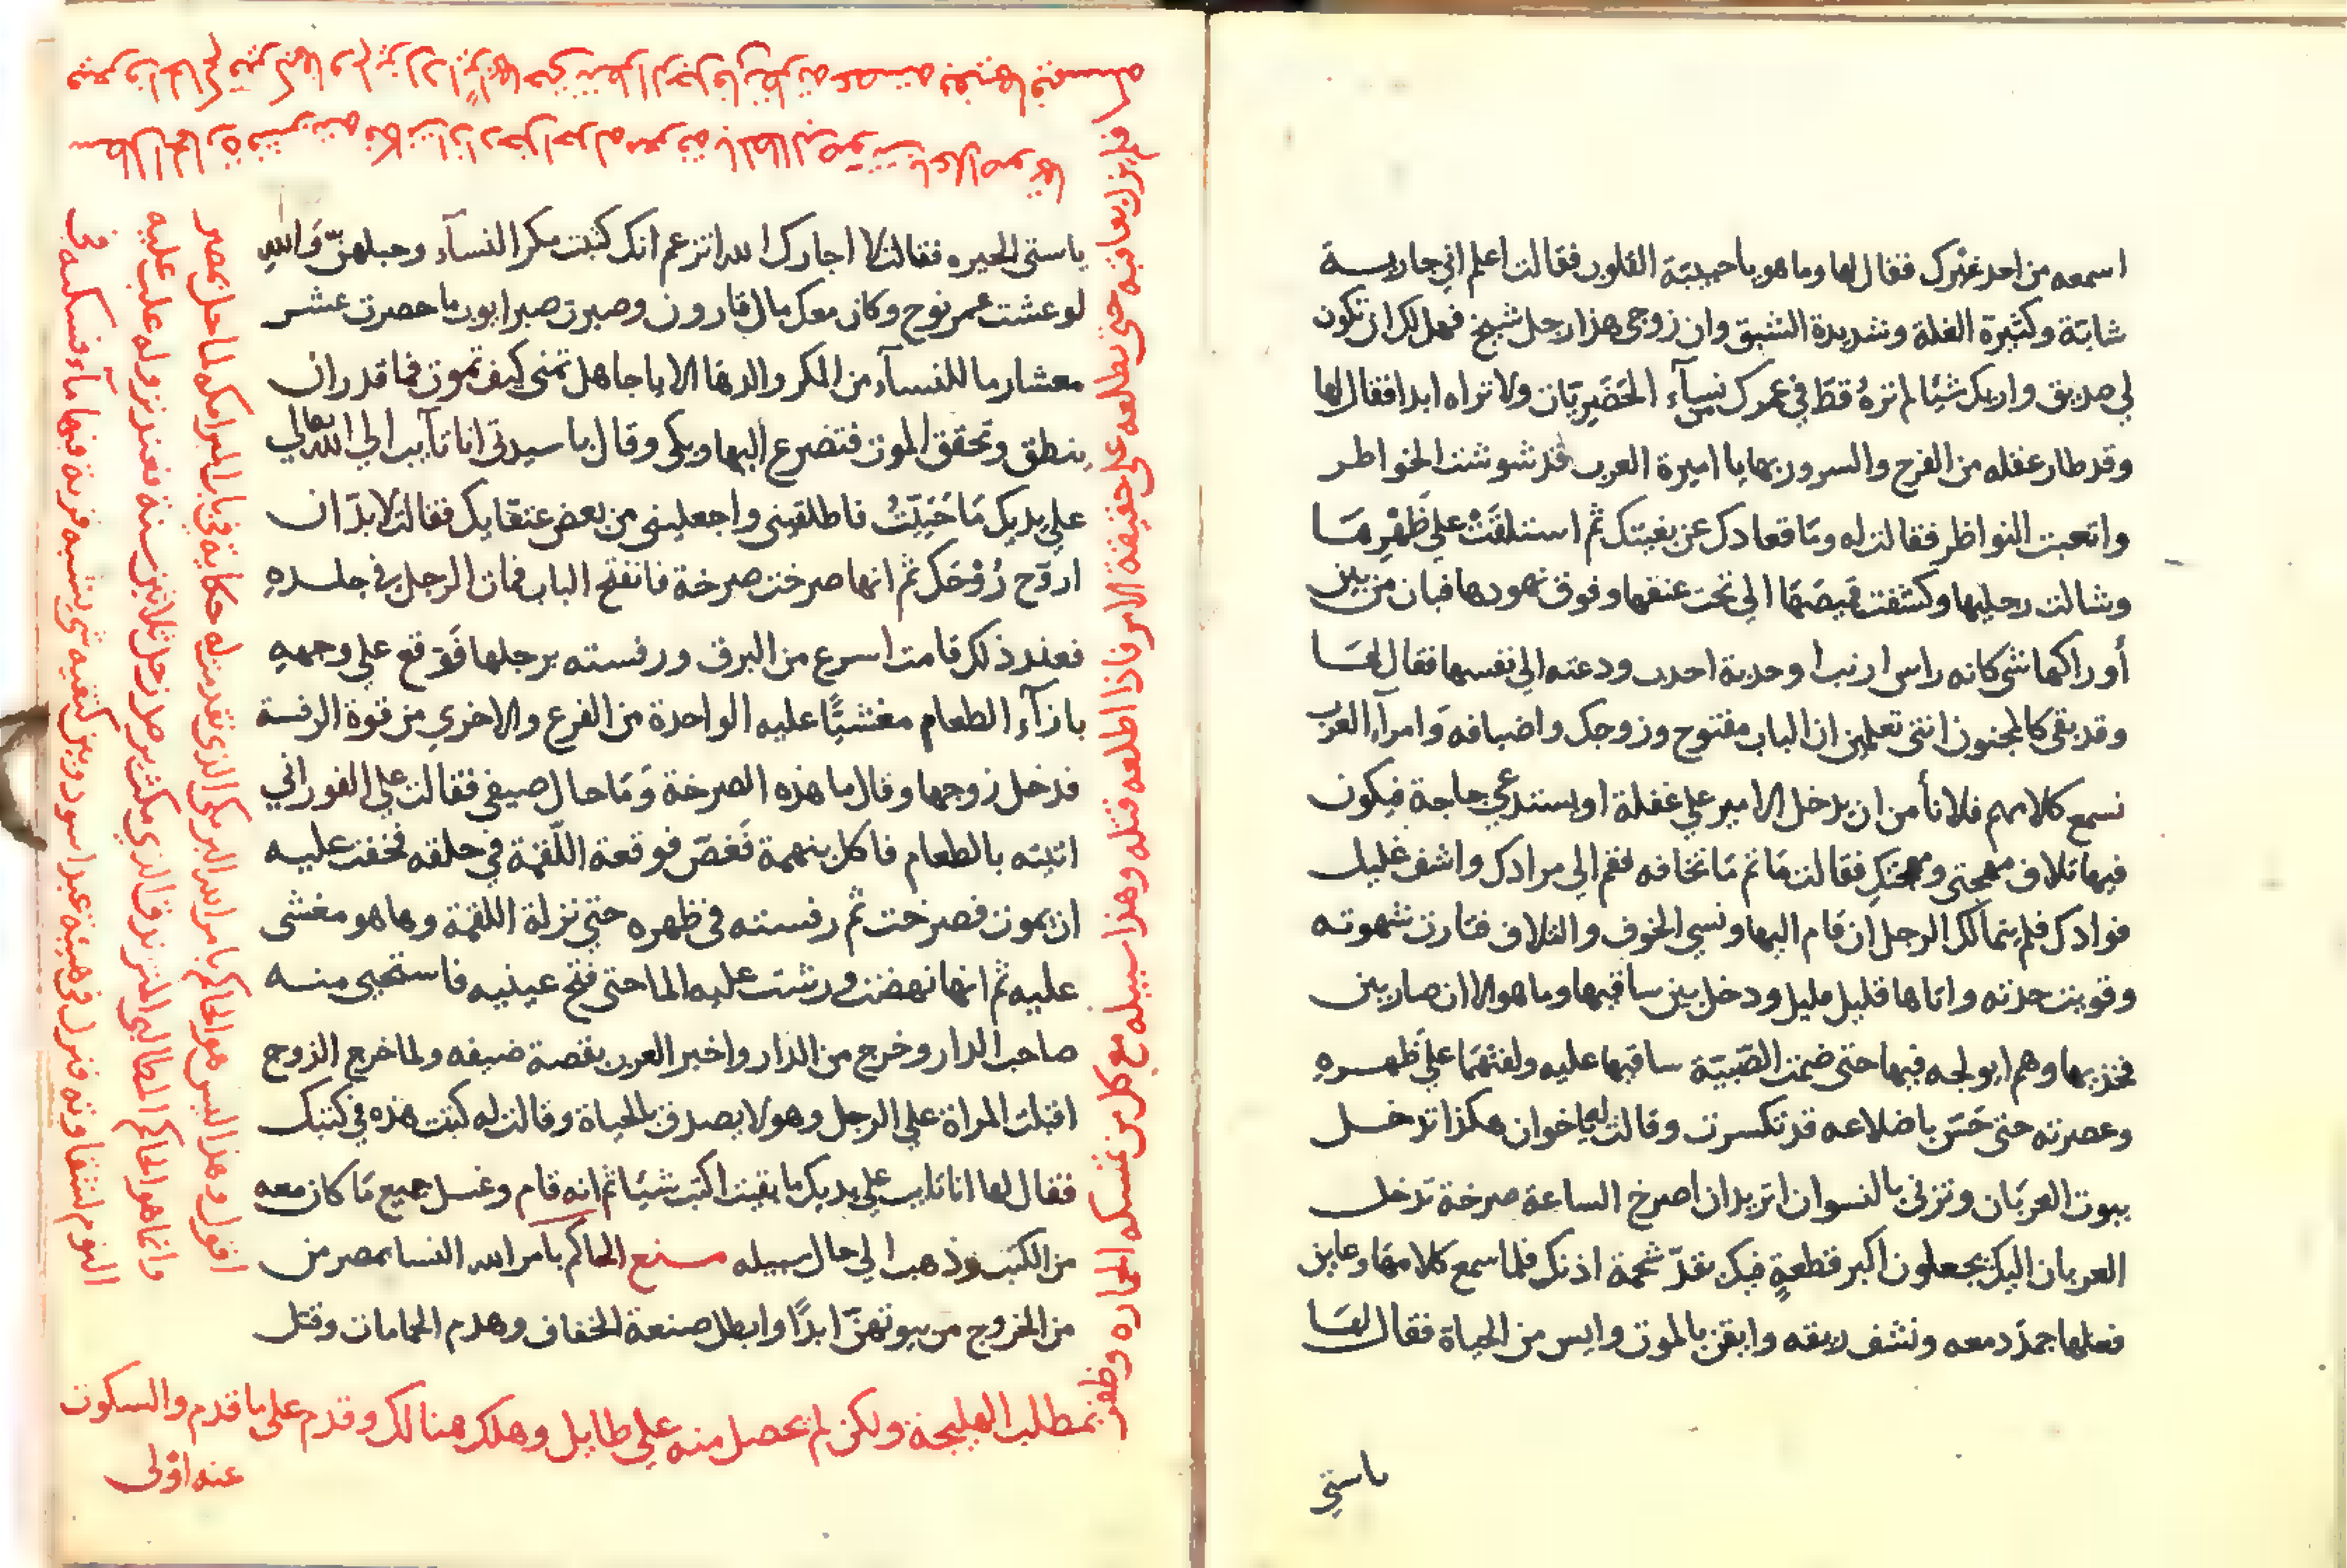 اسمعه من احد غيرك فقال لها وما هو يا حبيبة القلوب فقالت اعلم اني جاريـة
شابة وكثيرة الغلة وشديدة الشبق وان زوجي هذا رجل شيخ فهل لك ان تكون
لي صديق واريك شيئا لم تره قط في عمرك نساء الحضريات ولا تراه ابدا فقال لها
وقد طار عقله من الفرح والسرور بها يا اميرة العرب قد شوشت الخواطر
واتعبت النواظر فقالت له وما قعادك عن بغيتك ثم استلقت علي ظهرها
وشالت رجليها وكشفت قميصها الي تحت عنقها وفوق نهودها فبان من بين
أوراكها شي كانه راس ارنب او حدبة احدب ودعته الي نفسها فقال لها
وقد بقي كالمجنون انتي تعلمين ان الباب مفتوح وزوجك واضيافه وامرآء العرب
نسمع كلامهم فلا نأمن ان يدخل الامير علي غفلة او يستدعي حاجة فيكون
فيها تلاف مهجتي ومهجتك فقالت ما ثم ما تخافه فقم الي مرادك واشف غليل
فوادك فلم يتمالك الرجل ان قام اليها ونسي الخوف والتلاف فثارت شهوته
وقويت حدته واتاها قليل مليل ودخل بين ساقيها وما هو الا ان صار بين
فخذيها وهم ايولجه فيها حتى ضمت الصبية ساقيها عليه ولفتهما علي ظهره
وعصرته حتى حس باضلاعه قد تكسرت وقالت له يا خوان هكذا تدخل
بيوت العربان وتزني بالنسوان اتريد ان اصرخ الساعة صرخة تدخل
العربان اليك يجعلون اكبر قطعة فيك بقد شحمة اذنك فلما سمع كلامها وعاين
فعلها جمد دمعه ونشف ريقه وايقن بالموت وايس من الحياة فقال لها
يا ستي
يا ستي الجيره فقالت لا اجارك الله اتزعم انك كتبت مكر النسآء وحيلهن والله
لو عشت عمر نوح وكان معك مال قارون وصبرت صبر ايوب ما حصرت عشر
معشار ما للنسآء من المكر والدها الا يا جاهل تمنى كيف تموت فما قدر ان
ينطق وتحقق الموت فتضرع اليها وبكى وقال يا سيدتي انا تآيب الي الله تعالي
علي يديك ما حييت فاطلقيني واجعليني من بعض عتقايك فقالت لا بد ان
اروح روحك ثم انها صرخت صرخة فانفتح الباب فمات الرجل في جلده
فعند ذلك قامت اسرع من البرق ورفسته برجلها فوقع علي وجهه
بازآء الطعام مغشيا عليه الواحدة من الفزع والاخري من قوة الرفسة
فدخل زوجها وقال ما هذه الصرخة وما حال ضيفي فقالت علي الفور اني
اتيته بالطعام فاكل بنهمة فغص فوقعة اللقمة في حلقه فخفت عليه
ان يموت فصرخت ثم رفسته في ظهره حتى نزلة اللقمة وها هو مغشى
عليه ثم انها نهضت ورشت عليه الما حتى فتح عينيه فاستحيى منه
صاحب الدار وخرج من الدار واخبر العرب بقصة ضيفه ولما خرج الزوج
اقبلت المراة علي الرجل وهو لا يصدق بالحياة وقالت له كتبت هذه في كتبك
فقال لها انا تايب علي يديك ما بقيت اكتب شيئا ثم انه قام وغسل جميع ما كان معه
من الكتب وذهب الي حال سبيله منع الحاكم بامر الله النسا بمصر من
من الخروج من بيوتهن ابدا وابطل صنعة الخفاف وهدم الحمامات وقتل
اقول وهذا ليس هو الحاكم بامر الله البرمكى الذي تقدم له حكاية في بابا لميرامكه لما دخل مصر
وانما هو الحاكم المطالبي الذي مكث يرصد زحل ثلاثين سنة فعند نزوله غلب عليه
النوم فنزل في هيئة عبد اسود وبين كتفيه شي يشبه قربة فيها مآء فسكبه في
فلم يزل يعاتبه حتى يطالعه على حقيقة الامر فاذا اطلعه قتله وهذا سبيله مع كل من تمسكه الحاره وظفر
بمطلب الهليجة ولكن لم يحصل منه علي طايل وهلك هنالك وقدم علي ما قدم والسكوت
عنه اولى